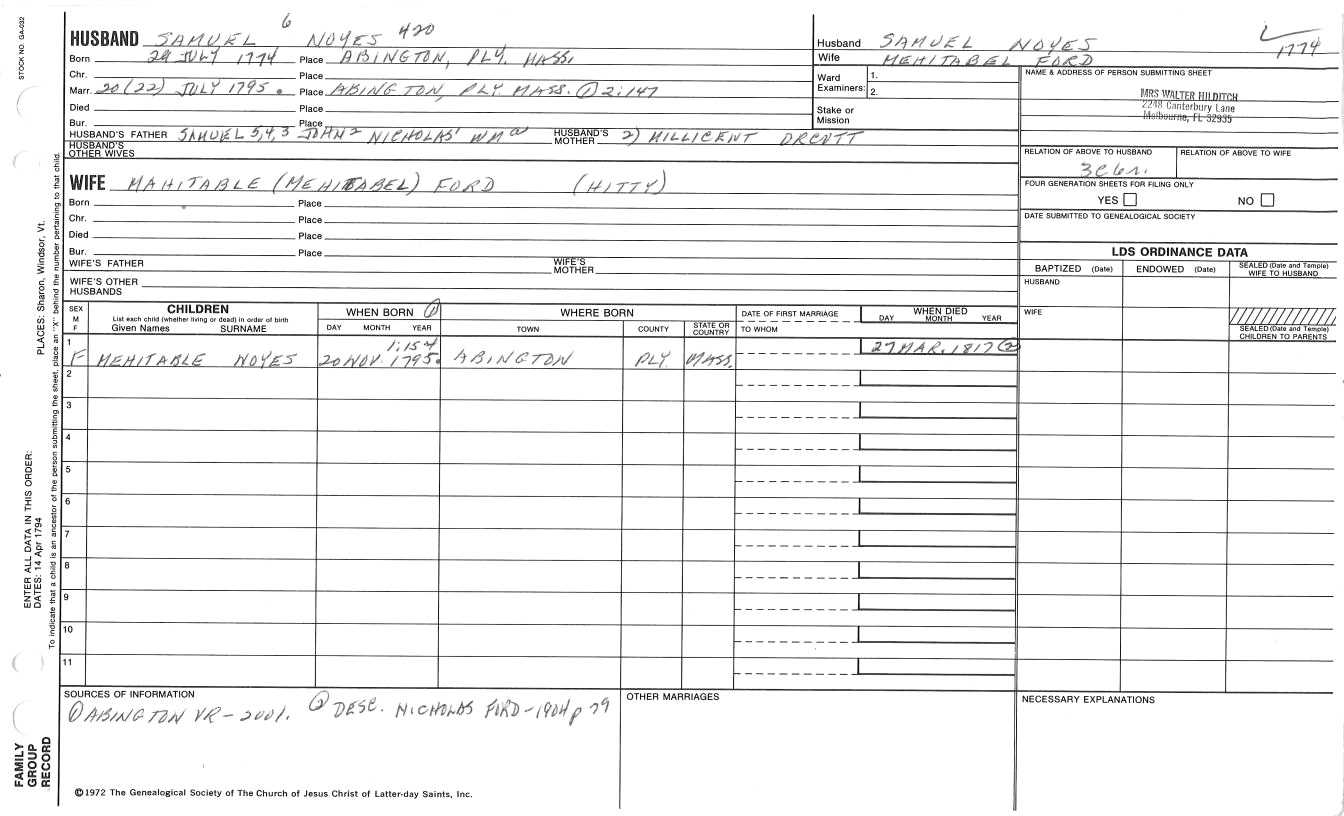 STOCK NO. GA-032
HUSBAND SAMUEL 6 NOYES 420
Born 29 JULY 1774 Place ABINGTON, PLY. MASS.
Chr. Place
Marr. 20 (22) JULY 1795. Place ABINGTON, PLY MASS. ① 2:147
Died Place
Bur. Place
HUSBAND'S FATHER SAMUEL 5,4,3 JOHN 2 NICHOLAS' WM a HUSBAND'S MOTHER 2) MILLICENT
HUSBAND'S OTHER WIVES
Husband SAMUEL NOYES 1774
Wife MEHITABEL FORD
Ward Examiners: 1.
2.
Stake or Mission
NAME & ADDRESS OF PERSON SUBMITTING SHEET
MRS WALTER HILDITCH
2248 Canterbury Lane
Melbourne, FL 32935
RELATION OF ABOVE TO HUSBAND RELATION OF ABOVE TO WIFE
3C6r.
FOUR GENERATION SHEETS FOR FILING ONLY
YES NO
DATE SUBMITTED TO GENEALOGICAL SOCIETY
WIFE MAHITABLE (MEHITABEL) FORD (HITTY)
Born Place
Chr. Place
Died Place
Bur. Place
WIFE'S FATHER WIFE'S MOTHER
WIFE'S OTHER HUSBANDS
LDS ORDINANCE DATA
BAPTIZED (Date) ENDOWED (Date) SEALED (Date and Temple) WIFE TO HUSBAND
HUSBAND
WIFE
SEALED (Date and Temple) CHILDREN TO PARENTS
SEX M F
CHILDREN
List each child (whether living or dead) in order of birth
Given Names SURNAME
WHEN BORN ①
DAY MONTH YEAR
WHERE BORN
TOWN COUNTY STATE OR COUNTRY
DATE OF FIRST MARRIAGE
TO WHOM
WHEN DIED
DAY MONTH YEAR
1 1:154 27 MAR. 1817 ②
F MEHITABLE NOYES 20 NOV. 1795. ABINGTON PLY. MASS.
2
3
4
5
6
7
8
9
10
11
SOURCES OF INFORMATION
① ABINGTON VR - 2001. ② DESC. NICHOLAS FORD - 1904 p 79
OTHER MARRIAGES
NECESSARY EXPLANATIONS
©1972 The Genealogical Society of The Church of Jesus Christ of Latter-day Saints, Inc.
FAMILY GROUP RECORD
ENTER ALL DATA IN THIS ORDER:
DATES: 14 Apr 1794
PLACES: Sharon, Windsor, Vt.
To indicate that a child is an ancestor of the person submitting the sheet, place an "X" behind the number pertaining to that child.